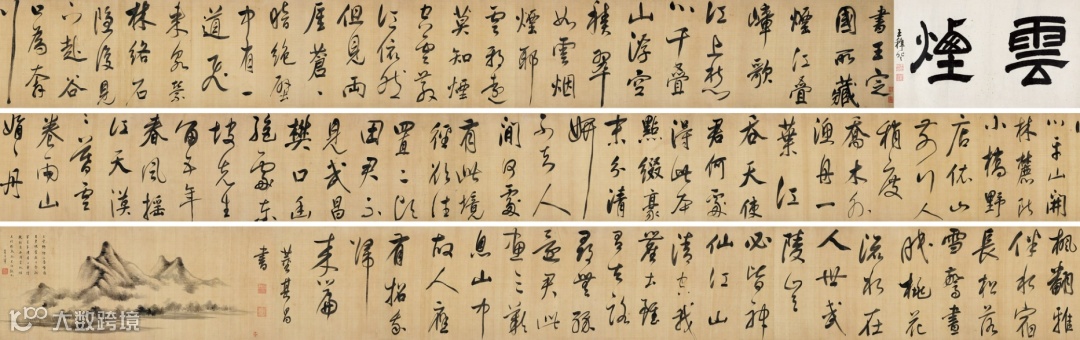 雲煙
書王定
國所藏
煙江疊
嶂歌
江上愁
心千疊
山浮空
積翠
如雲烟
煙邪
雲邪遠
莫知煙
空雲散
山依然
但見兩
崖蒼〻
暗絕壁
中有一
道飛
來泉縈
林絡石
隱復見
下赴谷
口為奔
川
川平山開
林麓斷
小橋野
店依山
前行人
稍度
喬木外
漁舟一
葉江
吞天使
君何處
得此本
點綴豪
末分清
妍
不知人
間何處
有此境
徑欲往
置二頃
田君不
見武昌
樊口幽
絕處東
坡先生
留五年
春風搖
江天漠
〻暮雲
卷雨山
娟〻丹
楓翻鴉
伴水宿
長松落
雪驚晝
眠桃花
流水在
人世武
陵豈
必皆神
仙江山
清空我
塵土雖
有去路
尋無緣
還君此
畫三歎
息山中
故人應
有招我
歸
來篇
董其昌
書
大数跨境